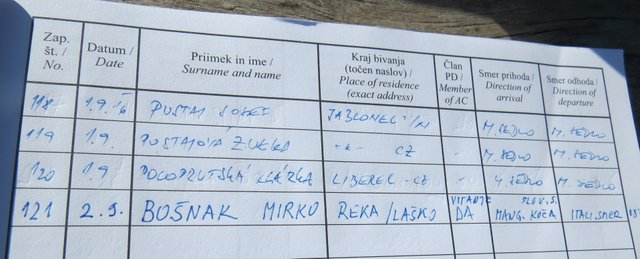 Zap. št. / No. Datum / Date Priimek in ime / Surname and name Kraj bivanja (točen naslov) / Place of residence (exact address) Član PD / Member of AC Smer prihoda / Direction of arrival Smer odhoda / Direction of departure
118 1.9.16 JABLONEC /N M. SEDLO M. SEDLO
119 1.9. - " - CZ - M. SEDLO M. SEDLO
120 1.9 KLÁRKA LIBEREC - CZ - M. SEDLO M. SEDLO
121 2.9. BOŠNAK MIRKO REKA / LAŠKO DA SLOV. S. MANG. KOČA ITALI. SMER